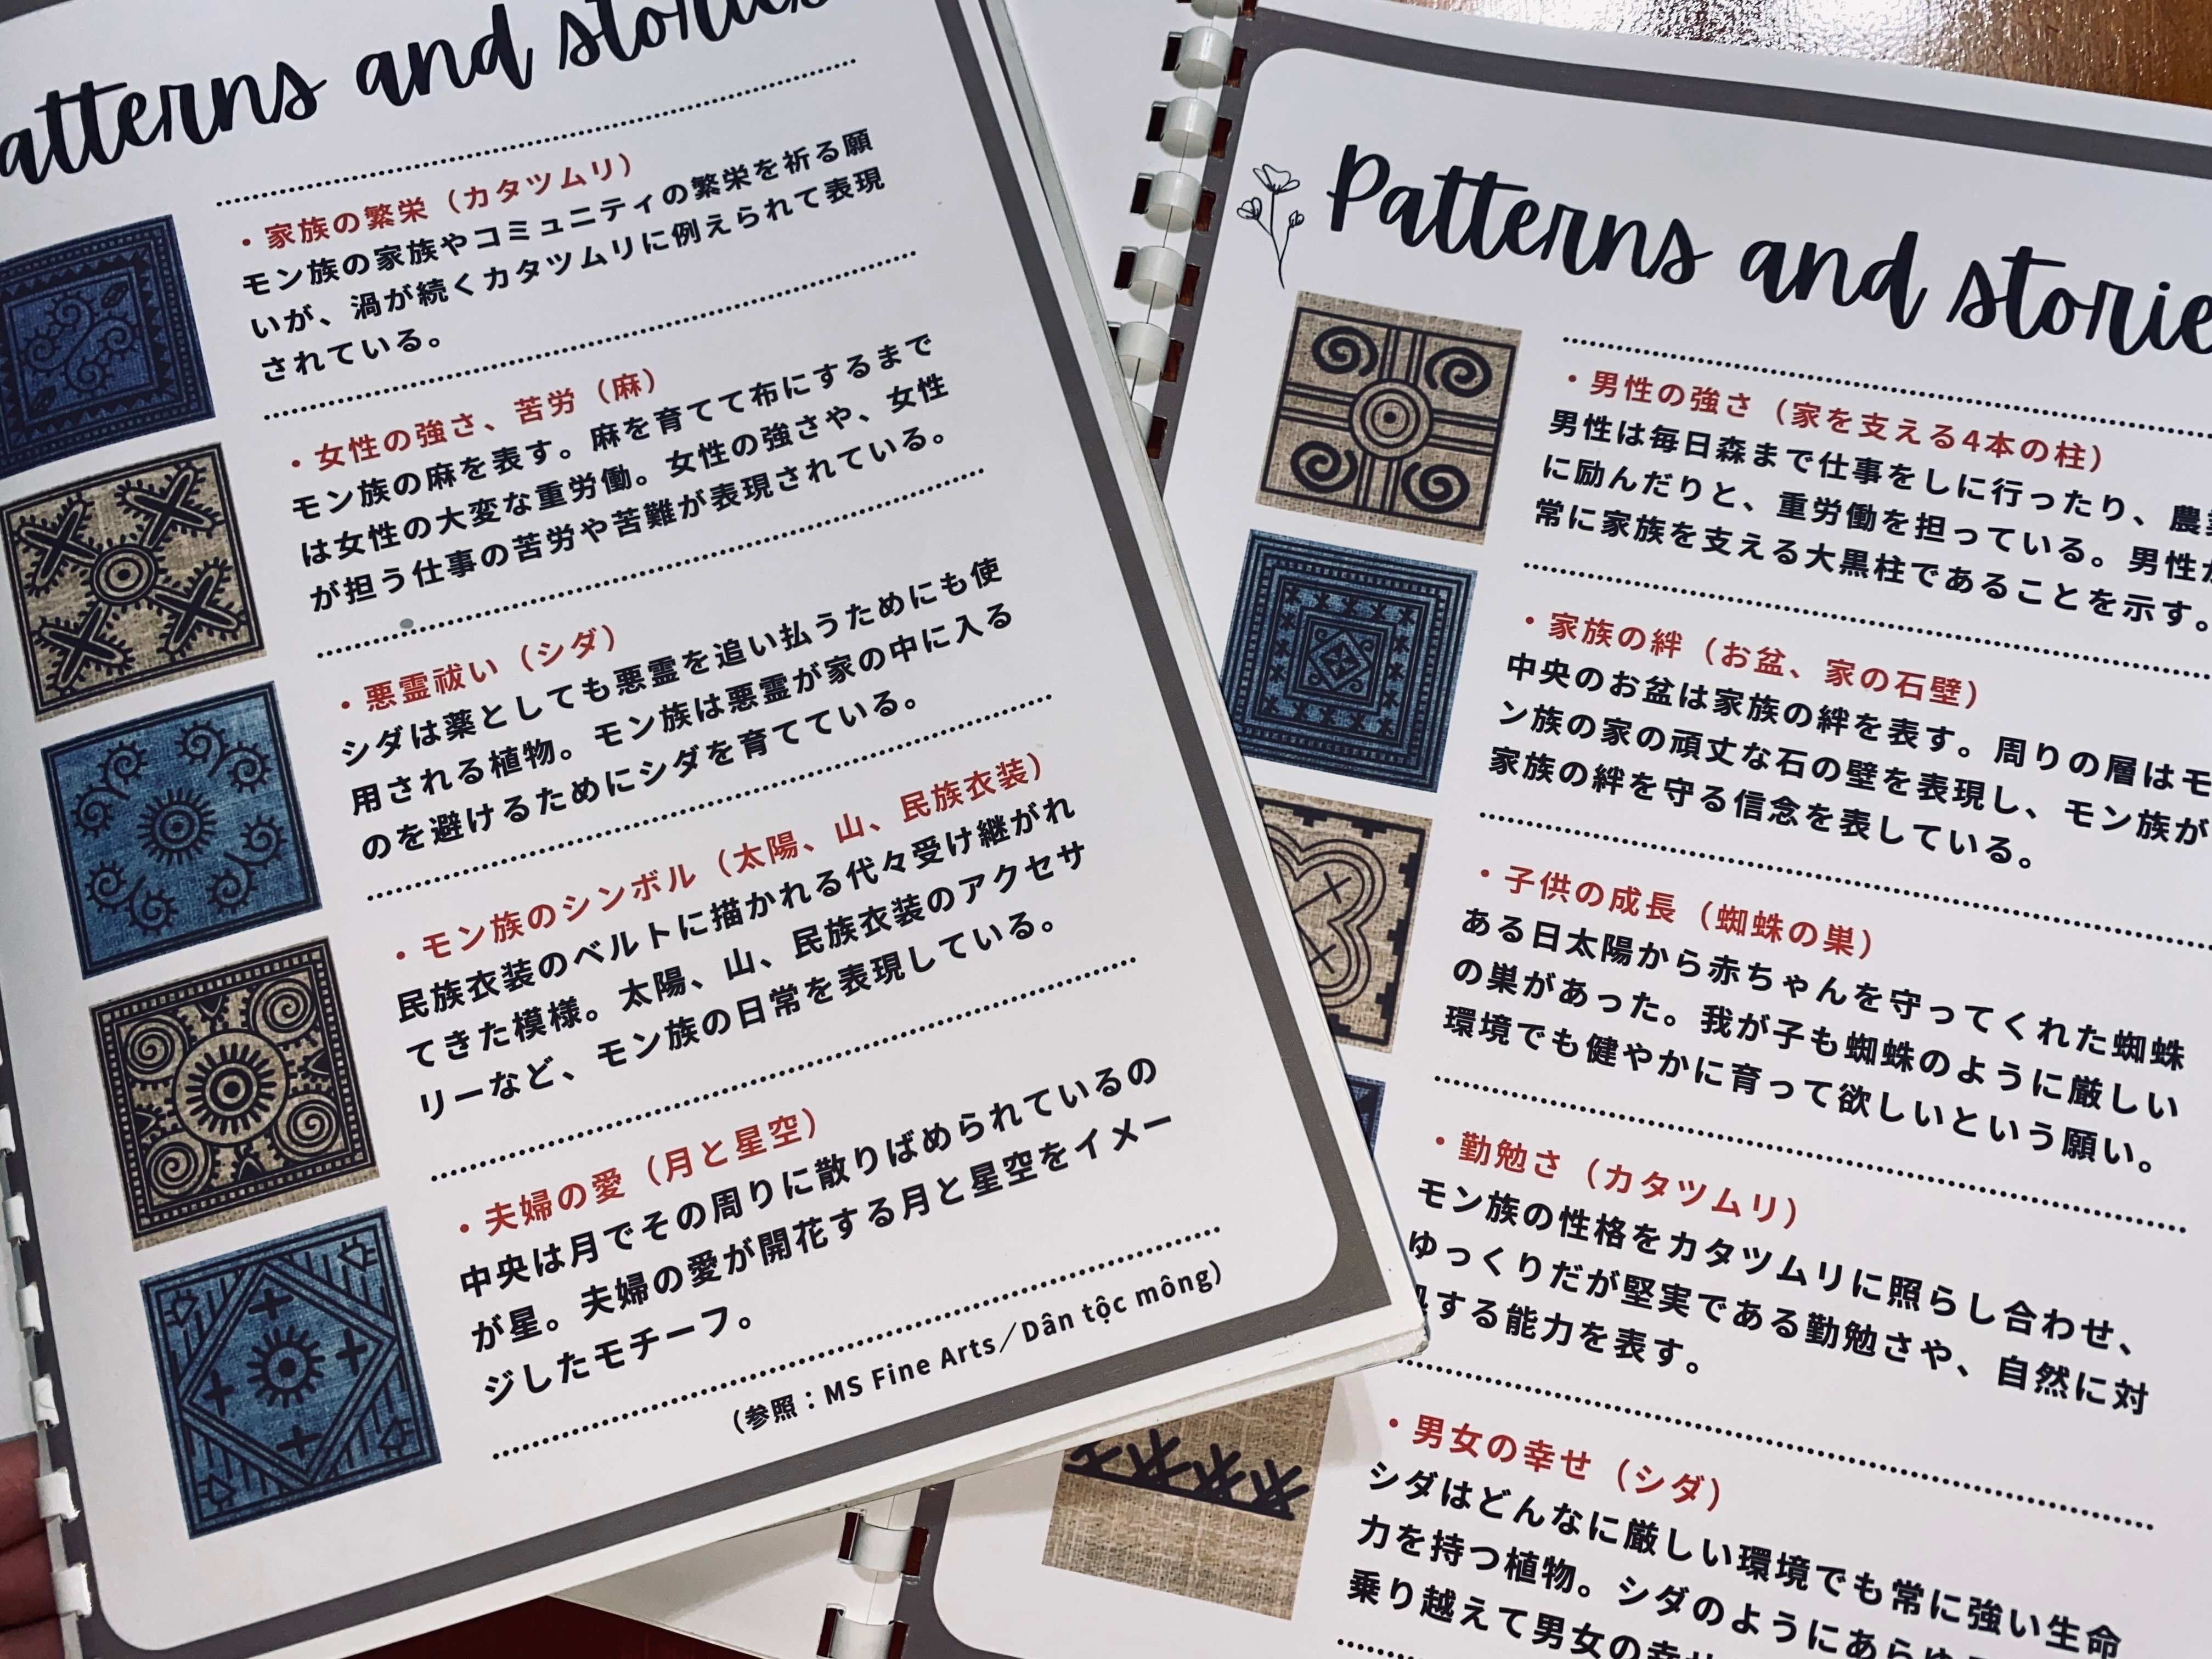 atterns and stories
・家族の繁栄（カタツムリ）
モン族の家族やコミュニティの繁栄を祈る願
いが、渦が続くカタツムリに例えられて表現
されている。
・女性の強さ、苦労（麻）
モン族の麻を表す。麻を育てて布にするまで
は女性の大変な重労働。女性の強さや、女性
が担う仕事の苦労や苦難が表現されている。
・悪霊祓い（シダ）
シダは薬としても悪霊を追い払うためにも使
用される植物。モン族は悪霊が家の中に入る
のを避けるためにシダを育てている。
・モン族のシンボル（太陽、山、民族衣装）
民族衣装のベルトに描かれる代々受け継がれ
てきた模様。太陽、山、民族衣装のアクセサ
リーなど、モン族の日常を表現している。
・夫婦の愛（月と星空）
中央は月でその周りに散りばめられているの
が星。夫婦の愛が開花する月と星空をイメー
ジしたモチーフ。
（参照：MS Fine Arts／Dân tộc mông）
Patterns and storie
・男性の強さ（家を支える4本の柱）
男性は毎日森まで仕事をしに行ったり、農
に励んだりと、重労働を担っている。男性が
常に家族を支える大黒柱であることを示す。
・家族の絆（お盆、家の石壁）
中央のお盆は家族の絆を表す。周りの層はモ
ン族の家の頑丈な石の壁を表現し、モン族が
家族の絆を守る信念を表している。
・子供の成長（蜘蛛の巣）
ある日太陽から赤ちゃんを守ってくれた蜘蛛
の巣があった。我が子も蜘蛛のように厳しい
環境でも健やかに育って欲しいという願い。
・勤勉さ（カタツムリ）
モン族の性格をカタツムリに照らし合わせ、
ゆっくりだが堅実である勤勉さや、自然に対
する能力を表す。
・男女の幸せ（シダ）
シダはどんなに厳しい環境でも常に強い生命
力を持つ植物。シダのようにあらゆ
乗り越えて男女の幸せ